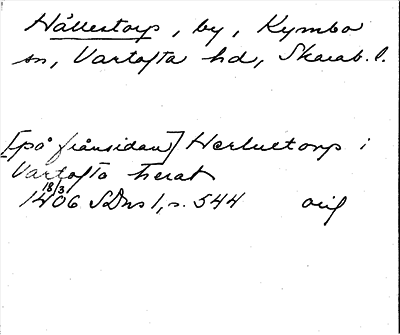 Hållestorp, by, Kymbo
sn, Vartofta hd, Skarab. l.
[på frånsidan] Herluetorp i
Vartofta herat
18/3
1406 SDns 1, s. 544 orig